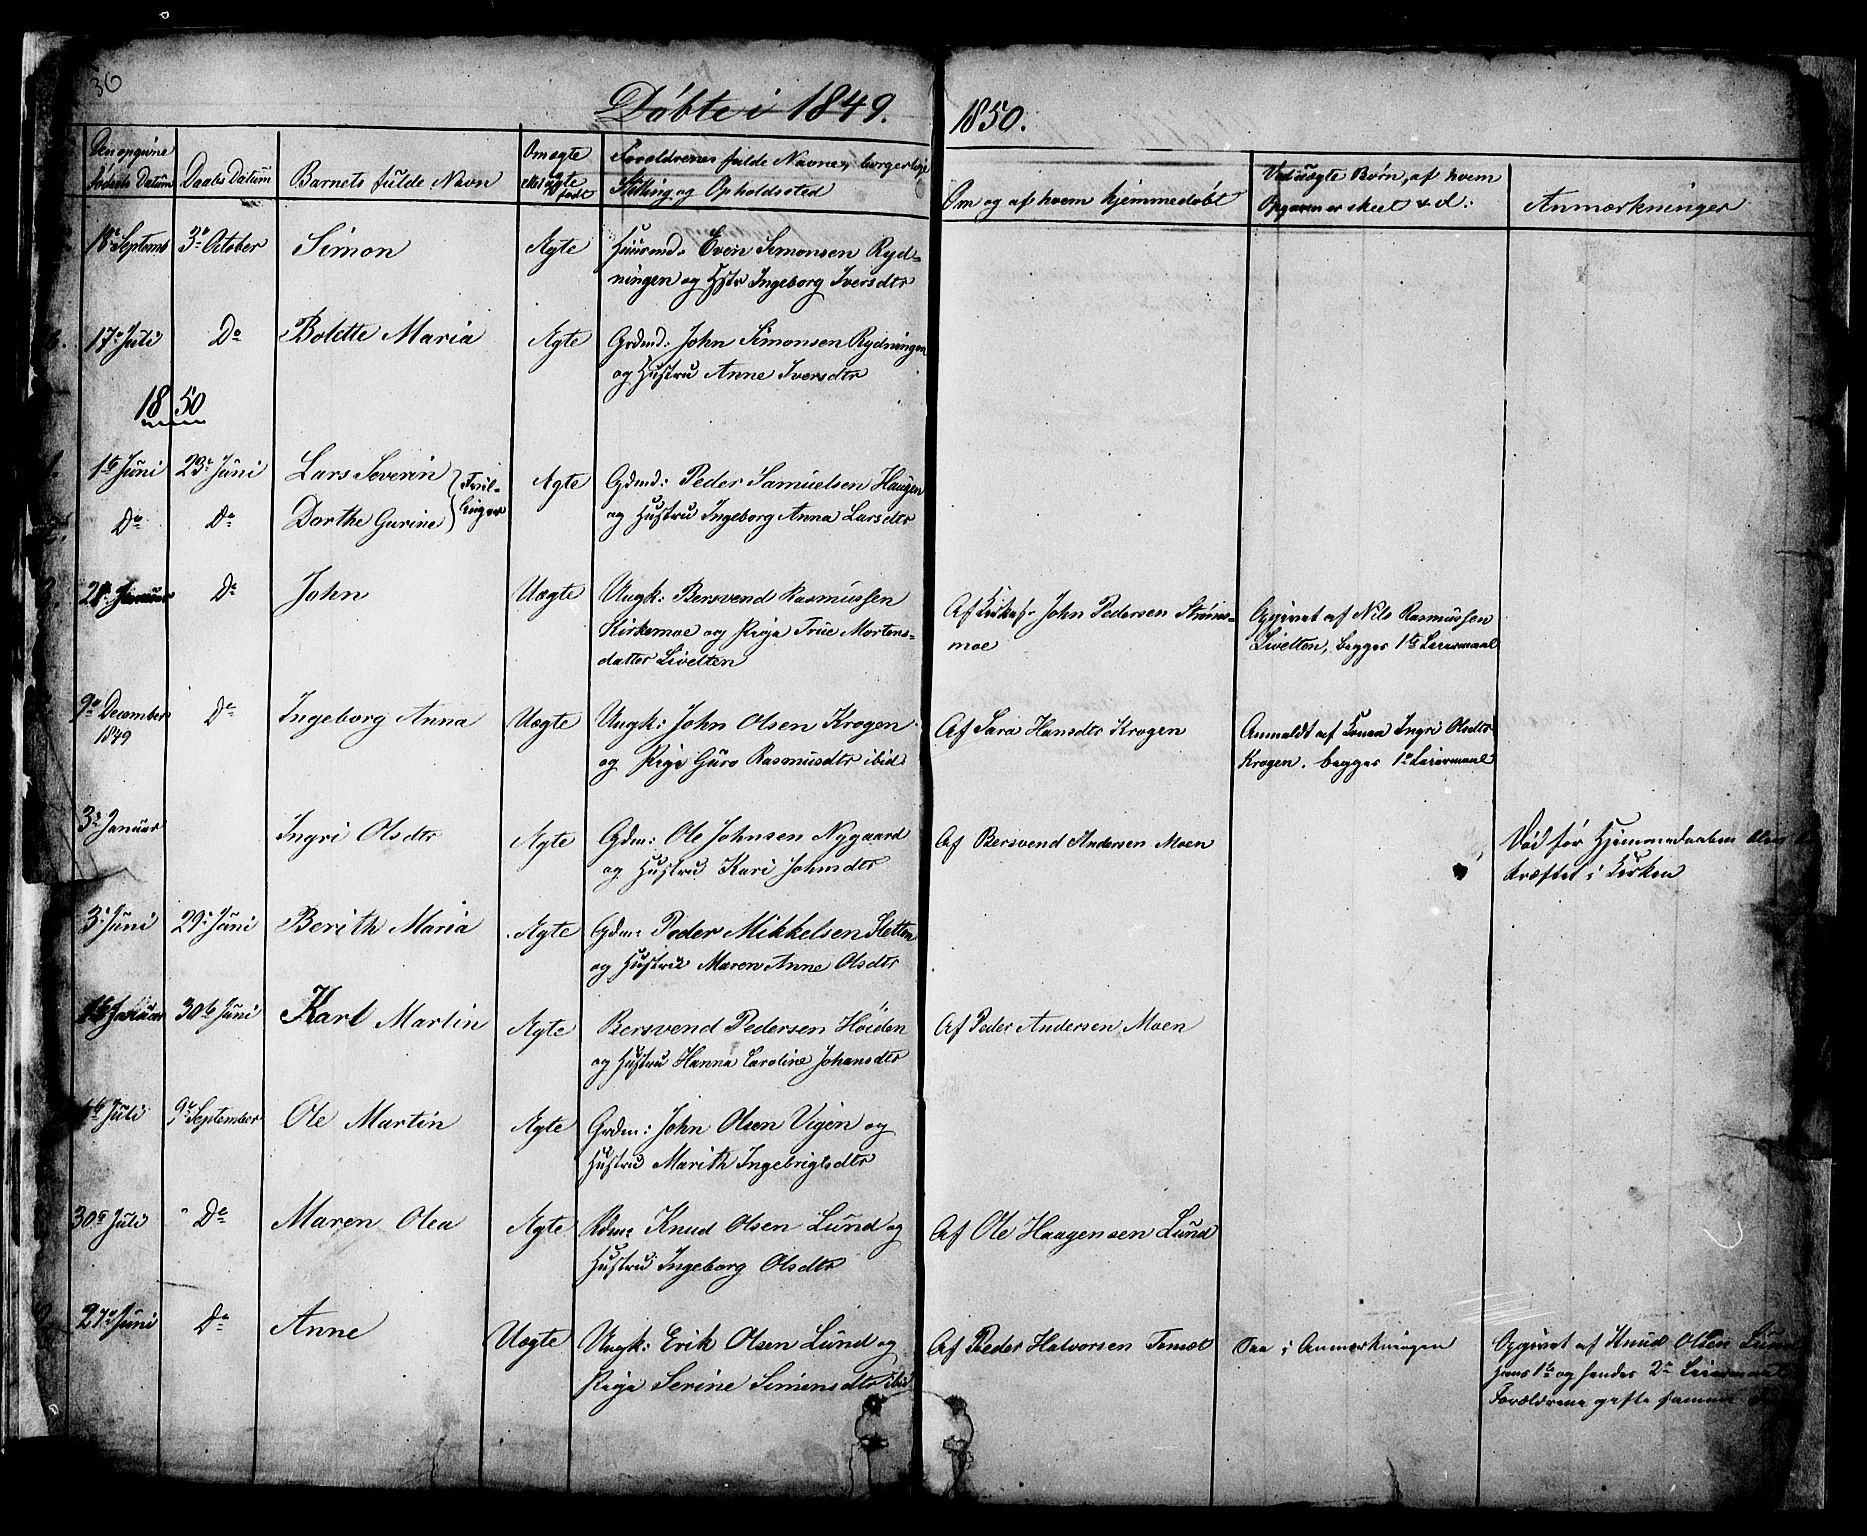 36
Døbte i 1849. 1850.
Den opgivne Fødsels Datum
Daabs Datum
Barnets fulde Navn
Om ægte eller uægte født
Forældrenes fulde Navne, borgerlige
Stilling og Opholdssted
Om og af hvem hjemmedøbt
Ved uægte Børn, af hvem
Opgaven er skeet &c d:
Anmærkninger
18de Septemb 3die October Simon Ægte Huusmd. Even Simonsen Ryd-
ningen og Hstr Ingeborg Iversdtr
17de Juli Do Bolette Maria Ægte Grdmd: John Simonsen Rydningen
og Hustru Anne Iversdtr
1850
1te Juni 23de Juni Lars Severin Tvil- Ægte Gdmd: Peder Samuelsen Haugen
Do Do Dorthe Gurine linger og Hustru Ingeborg Anna Larsdtr
28de Januar Do John Uægte Ungk: Bersvend Rasmussen
Kirkemoe og Pige True Mortens-
datter Livelten
Af Kirkes. John Pedersen Strøms-
moe
Opgivet af Nils Rasmussen
Livelten, begges 1te Leiermaal
9de December Do Ingeborg Anna Uægte Ungk: John Olsen Krogen
1849 og Pige Guro Rasmusdtr ibid.
Af Sara Hansdtr Krogen
Anmeldt af Konen Ingri Olsdtr
Krogen. begges 1te Leiermaal
3de Januar Ingri Olsdtr Ægte Gdm: Ole Johnsen Nygaard
og Hustru Kari Johnsdtr
Af Bersvend Andersen Moen
Død før Hjemmedaaben blev
kræftet i Kirken
3de Juni 29de Juni Berith Maria Ægte Gdm: Peder Mikkelsen Sletten
og Hustru Maren Anne Olsdtr
Januar 30te Juni Karl Martin Ægte Bersvend Pedersen Høiden
og Hustru Hanna Caroline Johansdtr
Af Peder Andersen Moen
Juli 9de September Ole Martin Ægte Grdm: John Olsen Vigen og
Hustru Marith Ingebrigtsdtr
30te Juli Do Maren Olea Ægte Knud Olsen Lund og
Hustru Ingeborg Olsdtr
Af Ole Haagensen Lund
27de Juni Do Anne Uægte Ungk: Erik Olsen Lund og
Pige Serine Simensdtr ibid
Af Peder Halvorsen Tømet
Saa i Anmærkningen
Opgivet af Knud Olsen Lund
hans 1te og hendes 2de Leiermaal
Forældrene gifte samme